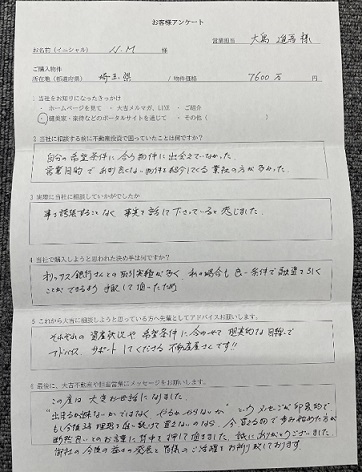 お客様アンケート
営業担当 大島 道吾 様
お名前（イニシャル） N.M 様
ご購入物件
所在地（都道府県） 埼玉県 / 物件価格 7600万 円
1 当社をお知りになったきっかけ
・ホームページを見て ・大吉メルマガ、LINE ・ご紹介
・健美家・楽待などのポータルサイトを通じて ・その他（ ）
2 当社に相談する前に不動産投資で困っていたことは何ですか？
自分の希望条件に合う物件に出会えていなかった。
営業目的で 良くない物件を紹介してくる業社の方が多かった。
3 実際に当社に相談していかがでしたか
事を誇張することなく 事実を話して下さっていると感じました。
4 当社で購入しようと思われた決め手は何ですか？
オリックス銀行さんとの取引実績が多く、私の場合も良い条件で融資を引く
ことができるよう 手配して頂いたため
5 これから大吉に相談しようと思っている方へ先輩としてアドバイスお願いします。
それぞれの資産状況や希望条件に合わせて 現実的な目線で
アドバイス、サポートしてくださる不動産屋さんです!!
6 最後に、大吉不動産や担当営業にメッセージをお願いします。
この度は 大変お世話になりました。
"出来るか出来ないかではなく やるかやらないか" というメッセージが印象的で
御社の今後の益々の発展と皆様のご活躍をお祈り致しております